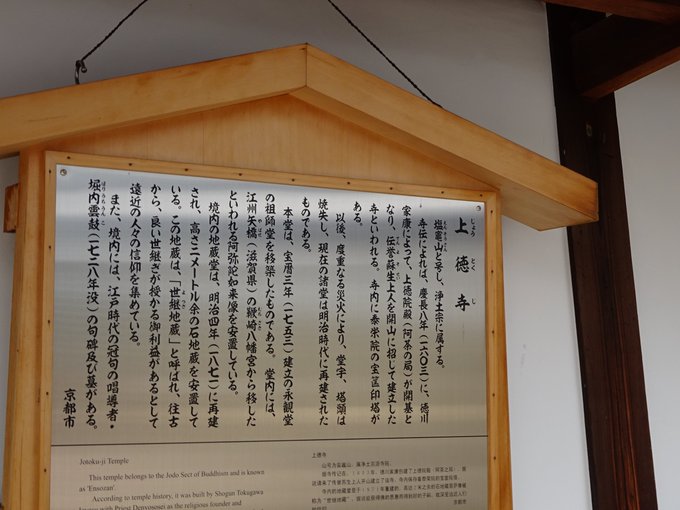 上徳寺
じょうとくじ
塩竈山と号し、浄土宗に属する。
寺伝によれば、慶長八年(一六〇三)に、徳川
家康によって、上徳院殿(阿茶の局)が開基と
なり、伝誉蘇生上人を開山に招じて建立した
寺といわれる。寺内に泰栄院の宝筐印塔が
ある。
以後、度重なる災火により、堂宇、塔頭は
焼失し、現在の諸堂は明治時代に再建された
ものである。
本堂は、宝暦三年(一七五三)建立の永観堂
の祖師堂を移築したものである。堂内には、
江州矢橋(滋賀県)の鞭崎八幡宮から移した
といわれる阿弥陀如来像を安置している。
境内の地蔵堂は、明治四年(一八七一)に再建
され、高さ二メートル余の石地蔵を安置して
いる。この地蔵は、「世継地蔵」と呼ばれ、往古
から、良い世継ぎが授かる御利益があるとして
遠近の人々の信仰を集めている。
また、境内には、江戸時代の冠句の唱導者・
堀内雲鼓(一七二八年没)の句碑及び墓がある。
京都市
Jotoku-ji Temple
This temple belongs to the Jodo Sect of Buddhism and is known
as 'Ensozan'.
According to temple history, it was built by Shogun Tokugawa
Ieyasu with Priest Denyososei as the religious founder and
上徳寺